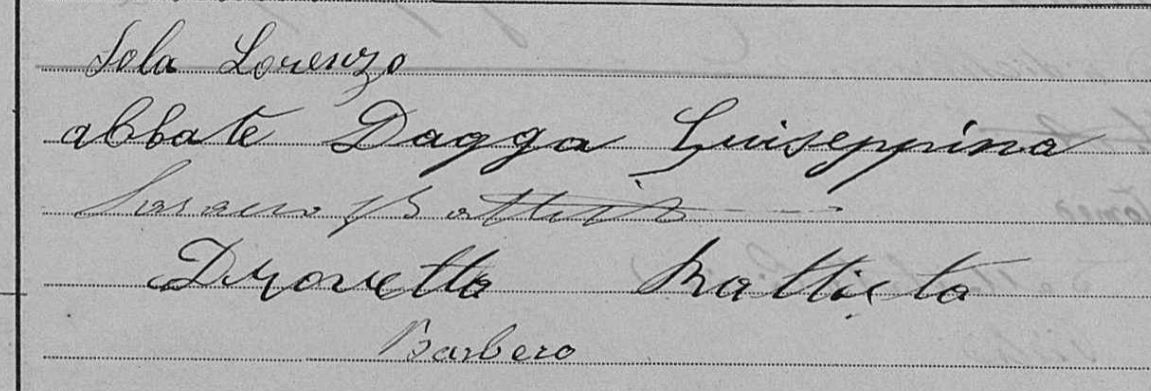 Sola Lorenzo
abbate Dagga Guiseppina
Battista
Drovetto Battista
Barbero